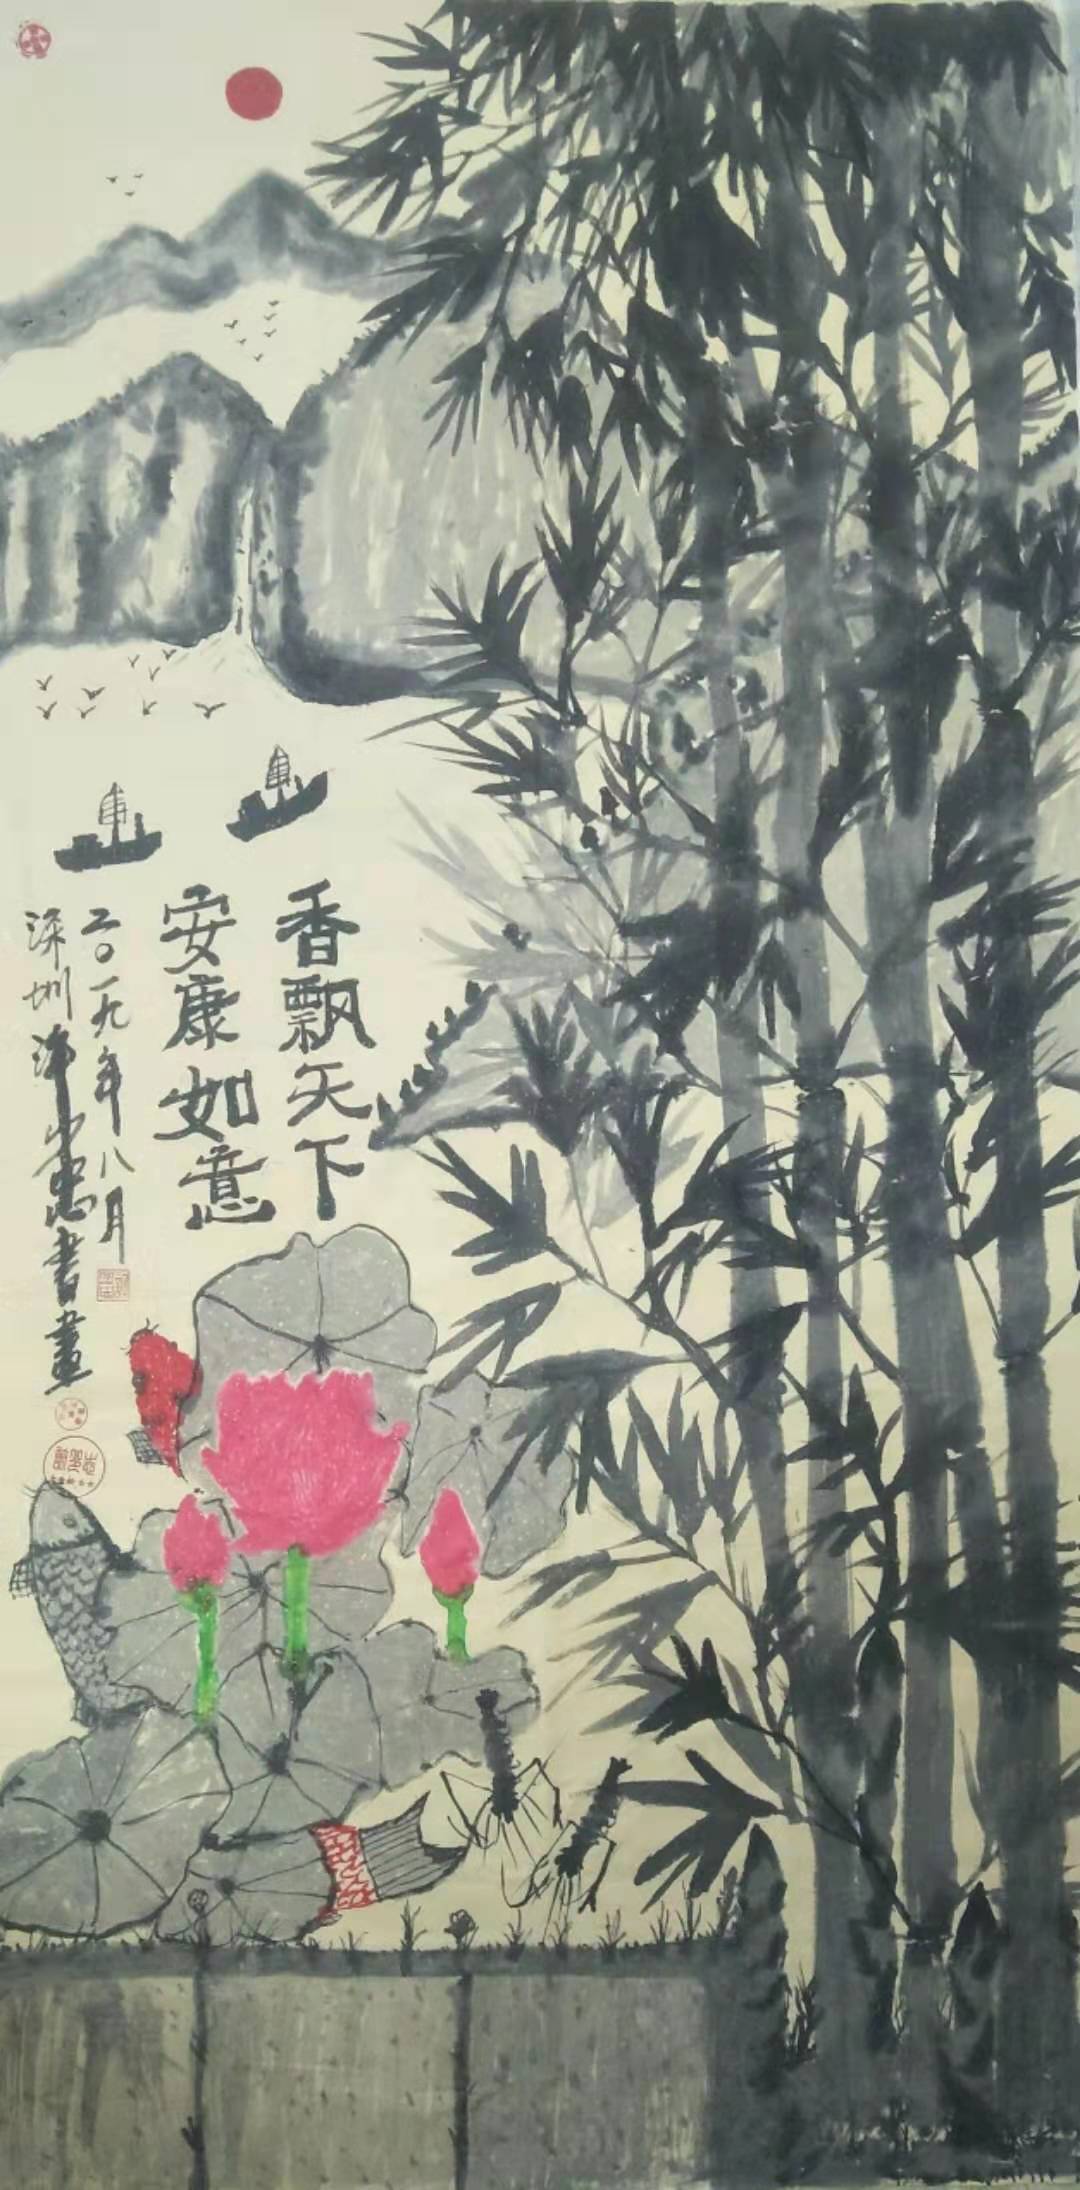 香飘天下
安康如意
二〇一九年八月
深圳忠書畫